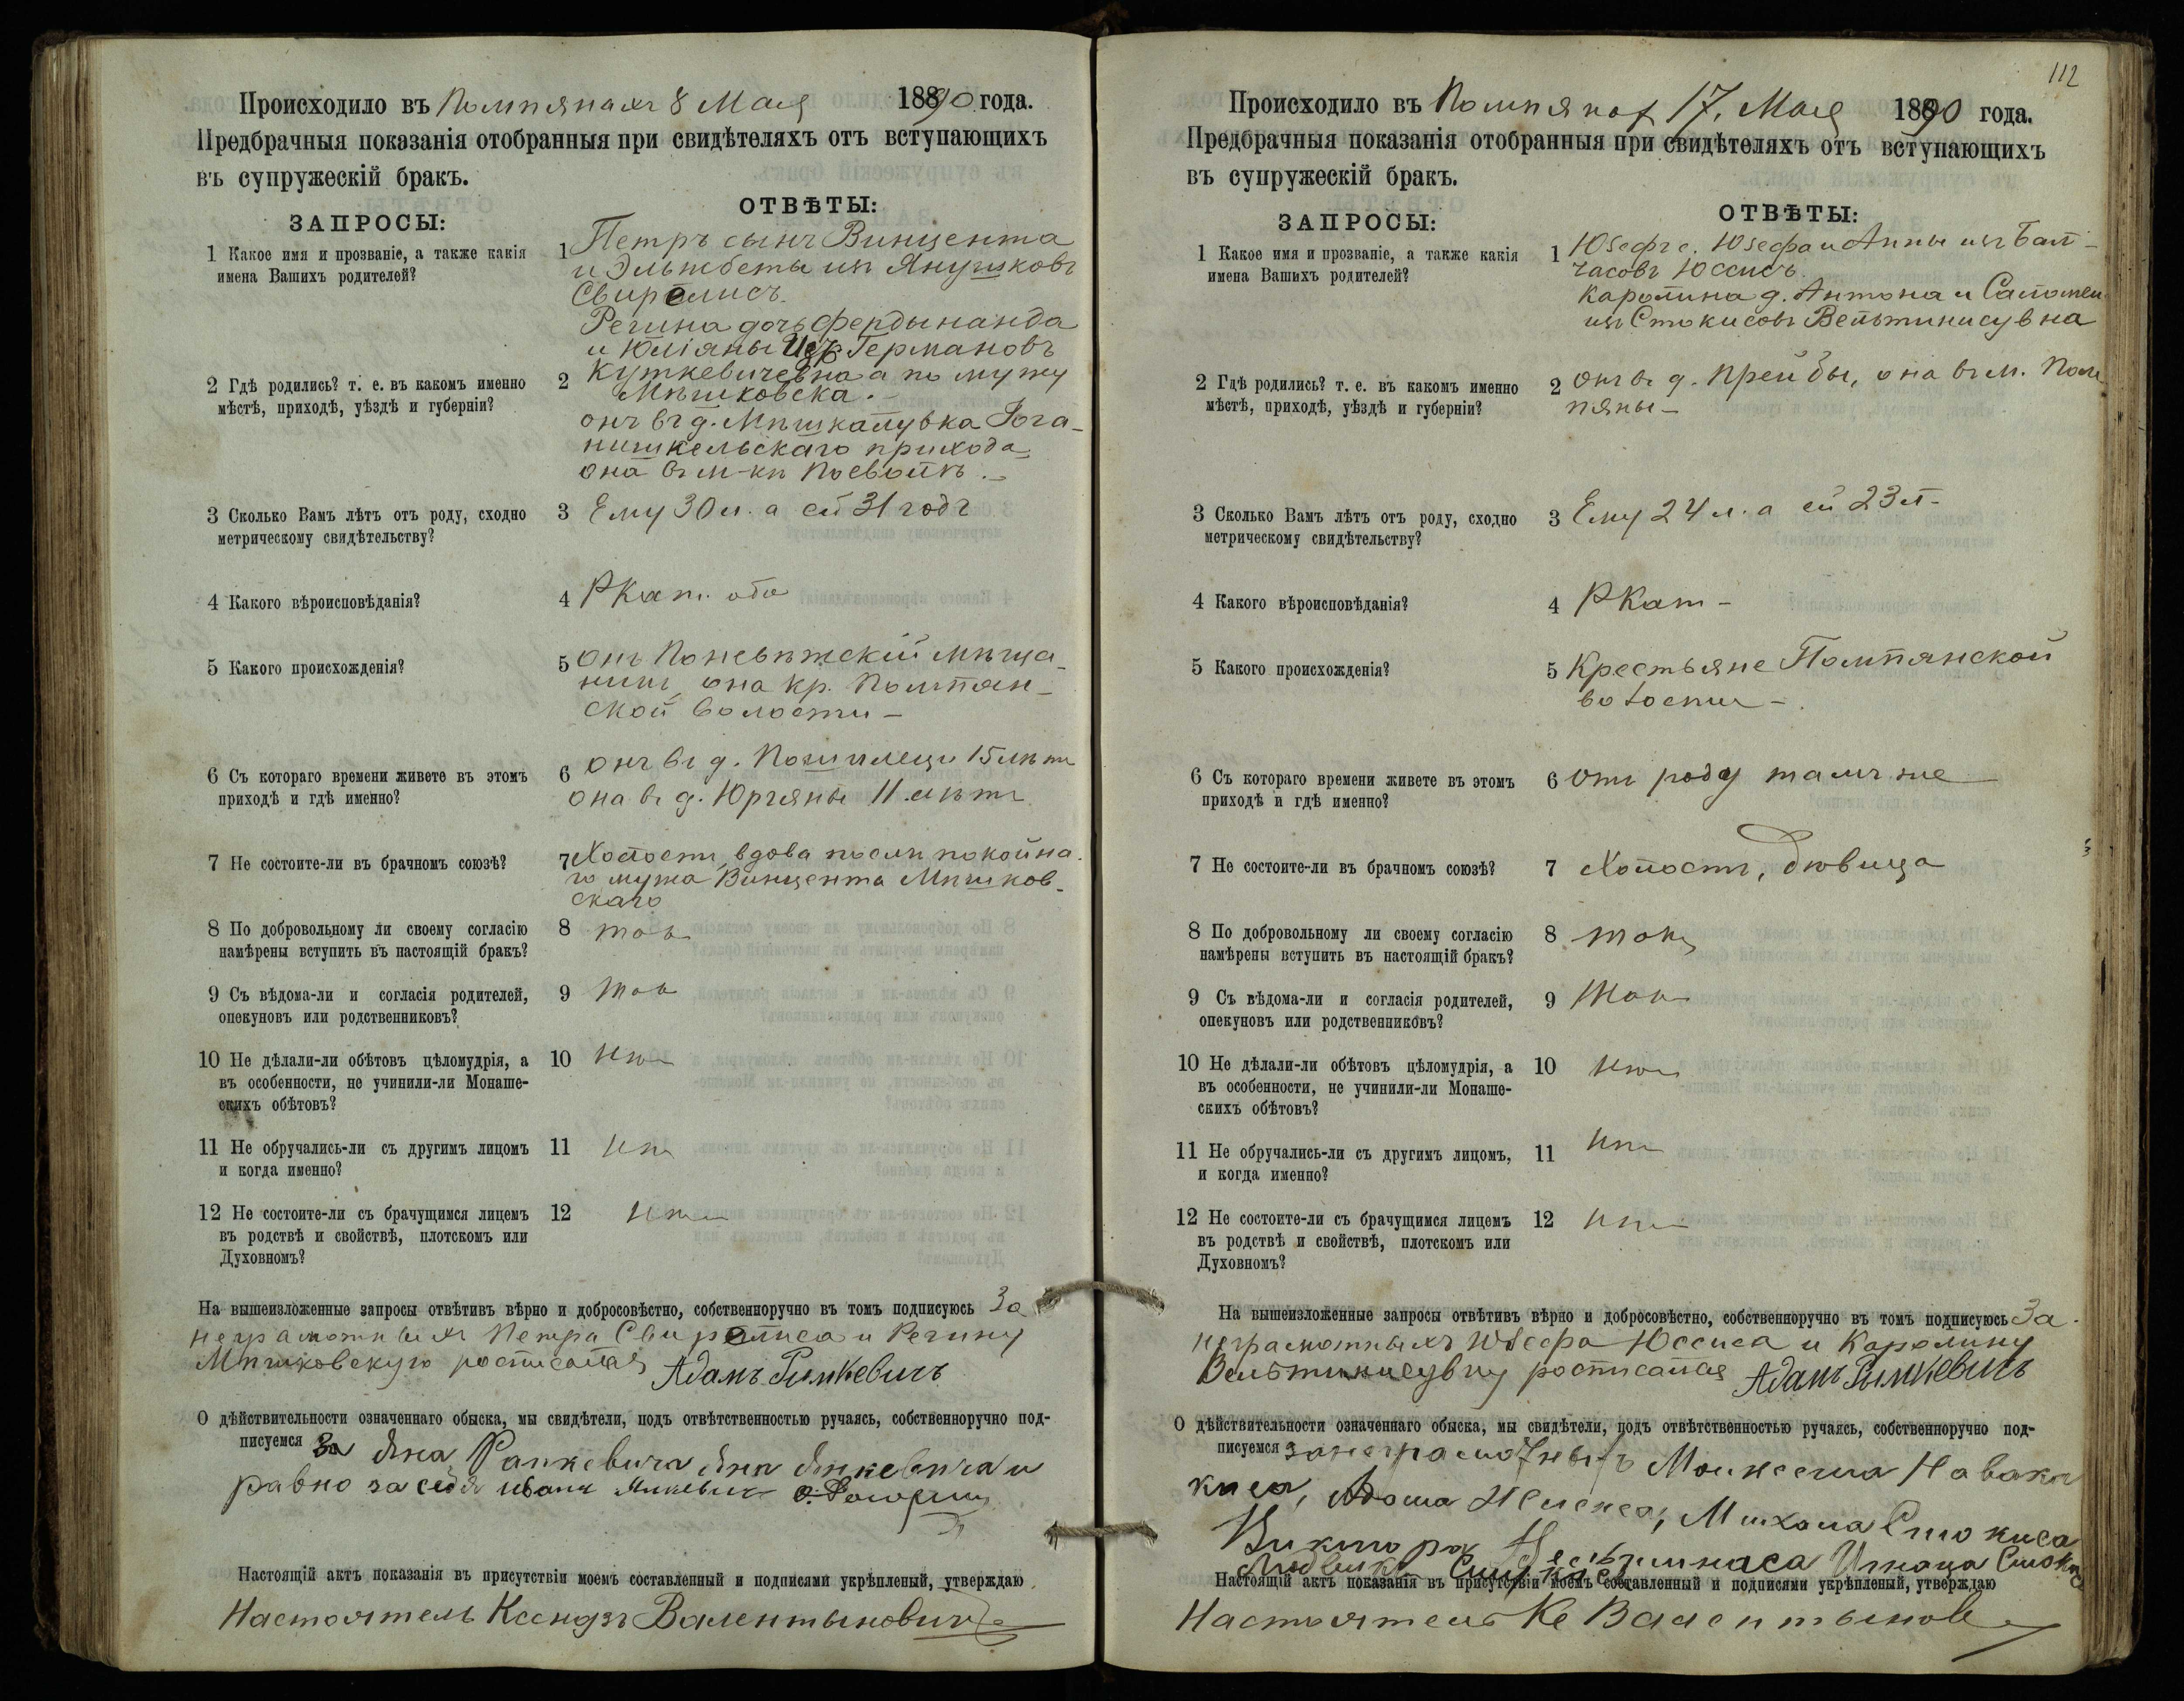 Происходило въ Помпянахъ 8 Мая 1890 года.
Предбрачныя показанія отобранныя при свидѣтеляхъ отъ вступающихъ
въ супружескій бракъ.
ЗАПРОСЫ:
ОТВѢТЫ:
1 Какое имя и прозваніе, а также какія
имена Вашихъ родителей?
1 Петръ сынъ Винцента
и Эльжбеты изъ Янушковъ
Свирелисъ.
Регина дочь Фердынанда
и Юліяны Изъ Германовъ
Куткевичевна а по мужу
Мѣшковска.
2 Гдѣ родились? т. е. въ какомъ именно
мѣстѣ, приходѣ, уѣздѣ и губерніи?
2 онъ въ д. Мишкалувка Рога-
нишкельскаго прихода
она въ м-кѣ Посволѣ.
3 Сколько Вамъ лѣтъ отъ роду, сходно
метрическому свидѣтельству?
3 Ему 30 л. а ей 31 годъ
4 Какого вѣроисповѣданія?
4 РКат. оба
5 Какого происхожденія?
5 онъ Поневѣжскій мѣща-
нинъ, она кр. Помпян-
ской волости –
6 Съ котораго времени живете въ этомъ
приходѣ и гдѣ именно?
6 онъ въ д. 15 лѣтъ
она въ д. Юргяны 11 лѣтъ
7 Не состоите-ли въ брачномъ союзѣ?
7 Холостъ, вдова послѣ покойна-
го мужа Винцента Мѣшков-
скаго
8 По добровольному ли своему согласію
намѣрены вступить въ настоящій бракъ?
8 такъ
9 Съ вѣдома-ли и согласія родителей,
опекуновъ или родственниковъ?
9 такъ
10 Не дѣлали-ли обѣтовъ цѣломудрія, а
въ особенности, не учинили-ли Монаше-
скихъ обѣтовъ?
10 нѣтъ
11 Не обручались-ли съ другимъ лицомъ
и когда именно?
11 нѣтъ
12 Не состоите-ли съ брачущимся лицемъ
въ родствѣ и свойствѣ, плотскомъ или
Духовномъ?
12 нѣтъ
На вышеизложенные запросы отвѣтивъ вѣрно и добросовѣстно, собственноручно въ томъ подписуюсь За
неграмотныхъ Петра Свирелиса и Регину
Мѣшковскую росписался Адамъ Рымкевичъ
О дѣйствительности означеннаго обыска, мы свидѣтели, подъ отвѣтственностью ручаясь, собственноручно под-
писуемся За Яна Рапкевича Яна Янкевича и
равно за себя Иванъ Янкевичъ
Настоящій актъ показанія въ присутствіи моемъ составленный и подписями укрѣпленый, утверждаю
Настоятель Ксендзъ Валентыновичъ
112
Происходило въ Помпянах 17. Мая 1890 года.
Предбрачныя показанія отобранныя при свидѣтеляхъ отъ вступающихъ
въ супружескій бракъ.
ЗАПРОСЫ:
ОТВѢТЫ:
1 Какое имя и прозваніе, а также какія
имена Вашихъ родителей?
1 Юзефъ с. Юзефа и Анны изъ Бал-
часовъ Юссисъ.
Каролина д. Антона и Саломеи
изъ Стокисовъ Вельтинисувна
2 Гдѣ родились? т. е. въ какомъ именно
мѣстѣ, приходѣ, уѣздѣ и губерніи?
2 Онъ въ д. Прейды, она въ м. Пом-
пяны –
3 Сколько Вамъ лѣтъ отъ роду, сходно
метрическому свидѣтельству?
3 Ему 24 л. а ей 23 л –
4 Какого вѣроисповѣданія?
4 РКат –
5 Какого происхожденія?
5 Крестьяне Помпянской
волости –
6 Съ котораго времени живете въ этомъ
приходѣ и гдѣ именно?
6 Отъ роду тамъ же
7 Не состоите-ли въ брачномъ союзѣ?
7 Холостъ, дѣвица
8 По добровольному ли своему согласію
намѣрены вступить въ настоящій бракъ?
8 такъ
9 Съ вѣдома-ли и согласія родителей,
опекуновъ или родственниковъ?
9 такъ
10 Не дѣлали-ли обѣтовъ цѣломудрія, а
въ особенности, не учинили-ли Монаше-
скихъ обѣтовъ?
10 нѣтъ
11 Не обручались-ли съ другимъ лицомъ,
и когда именно?
11 нѣтъ
12 Не состоите-ли съ брачущимся лицемъ
въ родствѣ и свойствѣ, плотскомъ или
Духовномъ?
12 нѣтъ
На вышеизложенные запросы отвѣтивъ вѣрно и добросовѣстно, собственноручно въ томъ подписуюсь За
неграмотныхъ Юзефа Юссиса и Каролину
Вельтинисувну росписался Адамъ Рымкевичъ
О дѣйствительности означеннаго обыска, мы свидѣтели, подъ отвѣтственностью ручаясь, собственноручно под-
писуемся за неграмотныхъ
Михала Стокиса
Игнаца Стокиса
Настоящій актъ показанія въ присутствіи моемъ составленный и подписями укрѣпленый, утверждаю
Настоятель Кс Валентынов